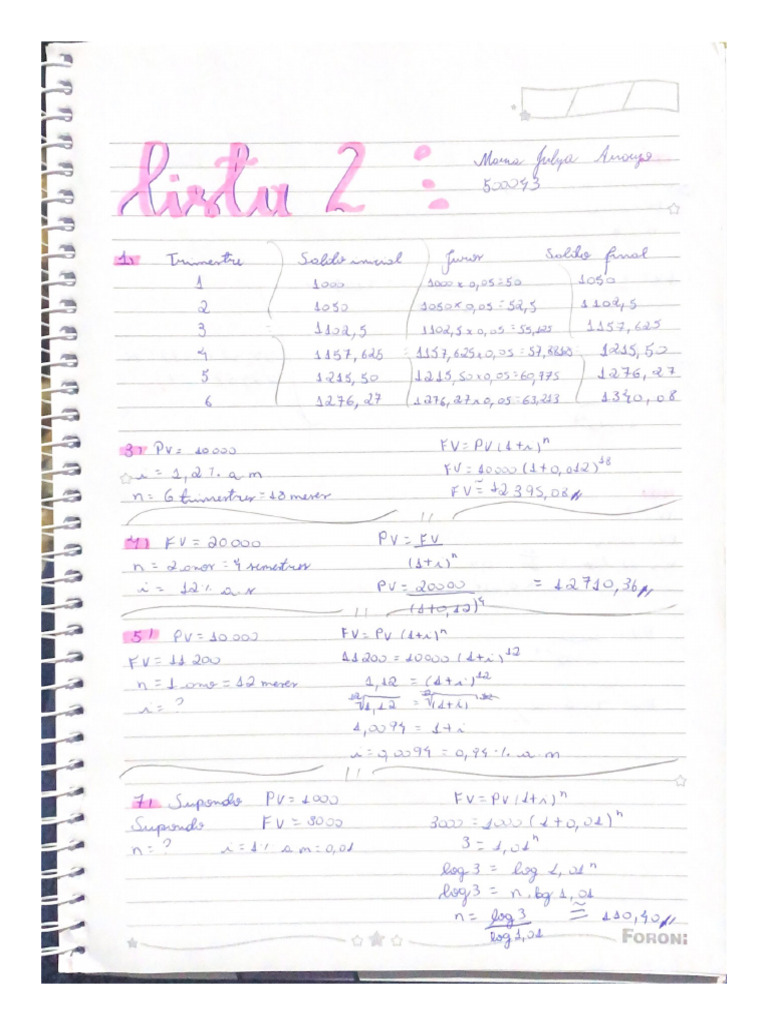 lista 2:
Maria Julya Araujo
500043
1) Trimestre Saldo inicial Juros Saldo final
1 1000 1000 x 0,05 = 50 1050
2 1050 1050 x 0,05 = 52,5 1102,5
3 1102,5 1102,5 x 0,05 = 55,125 1157,625
4 1157,625 1157,625 x 0,05 = 57,8813 1215,50
5 1215,50 1215,50 x 0,05 = 60,775 1276,27
6 1276,27 1276,27 x 0,05 = 63,813 1340,08
3) PV = 10000 FV = PV (1+i)ⁿ
i = 1,2% a m FV = 10000 (1+0,012)¹⁸
n = 6 trimestres = 18 meses FV ≅ 12395,08
4) FV = 20000 PV = FV
n = 2 anos = 4 semestres (1+i)ⁿ
i = 12% a s PV = 20000 = 12710,36
(1+0,12)⁴
5) PV = 10.000 FV = PV (1+i)ⁿ
FV = 11200 11200 = 10000 (1+i)¹²
n = 1 ano = 12 meses 1,12 = (1+i)¹²
i = ? ¹²√1,12 = ¹²√(1+i)¹²
1,0094 = 1+i
i = 0,0094 = 0,94% a m
7) Supondo PV = 1000 FV = PV (1+i)ⁿ
Supondo FV = 3000 3000 = 1000 (1+0,01)ⁿ
n = ? i = 1% a m = 0,01 3 = 1,01ⁿ
log 3 = log 1,01ⁿ
log 3 = n . log 1,01
n = log 3 ≅ 110,40
log 1,01
FORONI